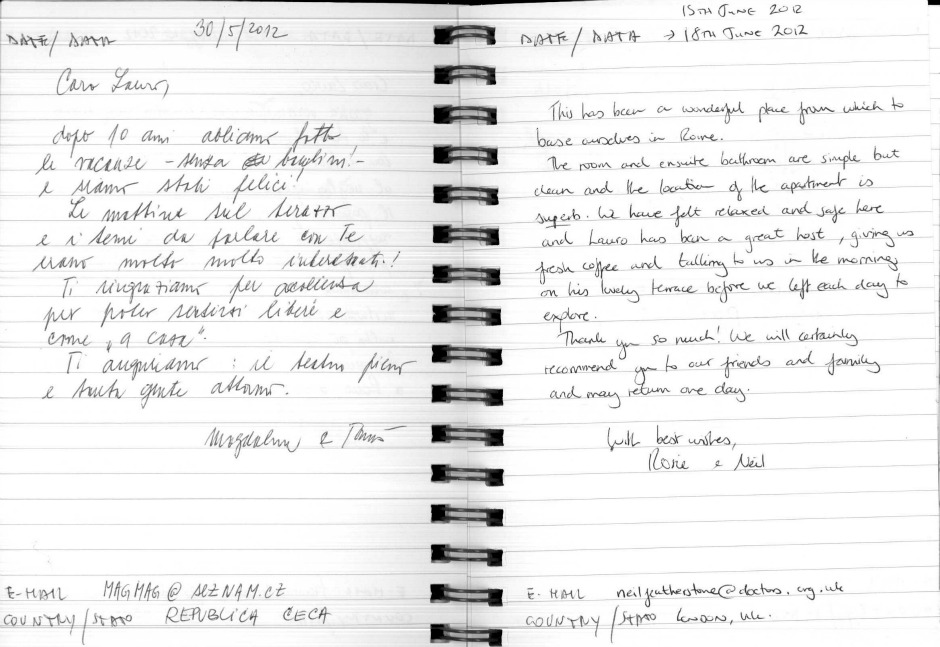 DATE/DATA 30/5/2012
Caro Lauro,
dopo 10 anni abbiamo fatto
le vacanze - senza bambini! -
e siamo stati felici!
Le mattine sul terazzo
e i temi da parlare con Te
erano molto molto interessati!
Ti ringraziamo per
per poter sentirsi liberi e
come „a casa“.
Ti auguriamo : il teatro pieno
e tanta gente attorno.
Magdalena e
E-MAIL MAGMAG@SEZNAM.CZ
COUNTRY/STATO REPUBLICA CECA
15TH JUNE 2012
DATE/DATA → 18TH JUNE 2012
This has been a wonderful place from which to
base ourselves in Rome.
The room and ensuite bathroom are simple but
clean and the location of the apartment is
superb. We have felt relaxed and safe here
and Lauro has been a great host, giving us
fresh coffee and talking to us in the mornings
on his lovely terrace before we left each day to
explore.
Thank you so much! We will certainly
recommend you to our friends and family
and may return one day.
With best wishes,
Rosie & Neil
E-MAIL neilfeatherstone@doctors.org.uk
COUNTRY/STATO LONDON, UK.